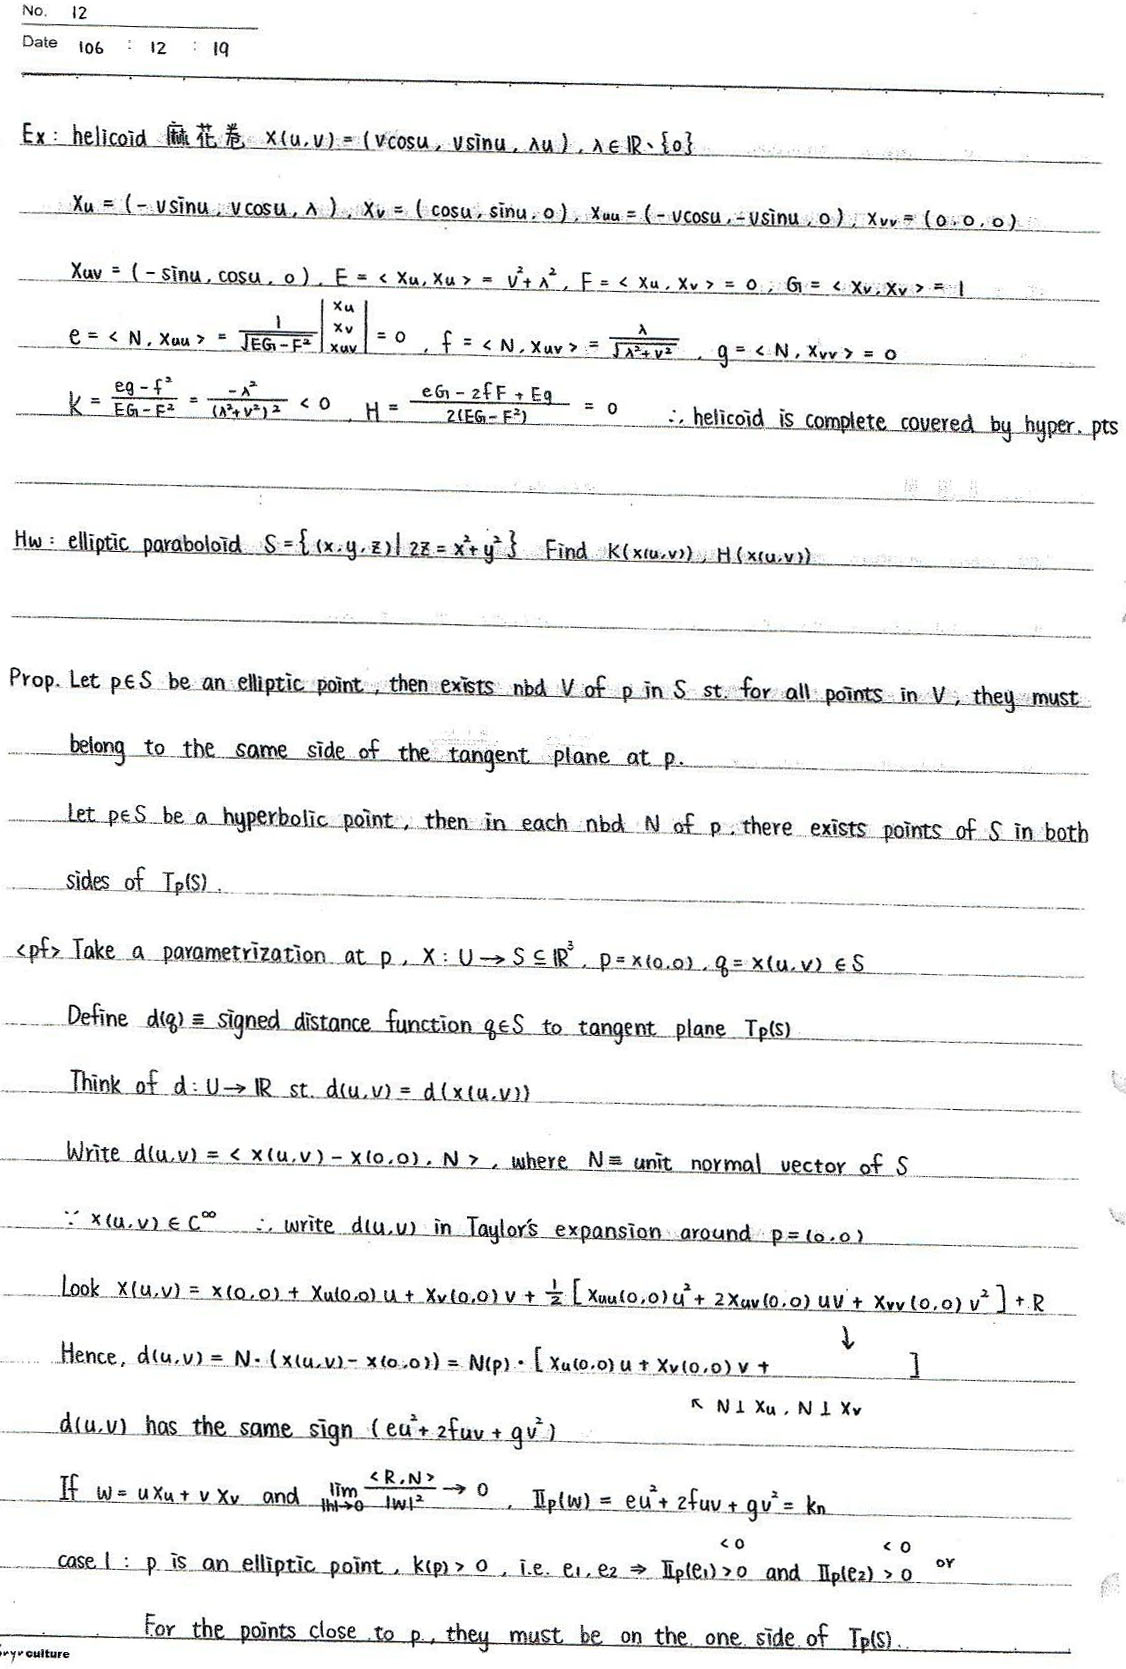 No. 12
Date 106 : 12 : 19
Ex : helicoid 麻花卷 X(u,v) = (vcosu, vsinu, λu), λ∈ℝ∖{0}
Xu = (-vsinu, vcosu, λ), Xv = (cosu, sinu, 0), Xuu = (-vcosu, -vsinu, 0), Xvv = (0,0,0)
Xuv = (-sinu, cosu, 0), E = <Xu, Xu> = v²+λ², F = <Xu, Xv> = 0, G = <Xv, Xv> = 1
e = <N, Xuu> = 1/√(EG-F²) |Xu Xv Xuv| = 0, f = <N, Xuv> = λ/√(λ²+v²), g = <N, Xvv> = 0
K = (eg-f²)/(EG-F²) = -λ²/(λ²+v²)² < 0, H = (eG-2fF+Eg)/2(EG-F²) = 0 ∴ helicoid is complete covered by hyper. pts
Hw : elliptic paraboloid S = {(x,y,z)| 2z = x²+y²} Find K(x(u,v)), H(x(u,v))
Prop. Let p∈S be an elliptic point, then exists nbd V of p in S st. for all points in V, they must
belong to the same side of the tangent plane at p.
Let p∈S be a hyperbolic point, then in each nbd N of p, there exists points of S in both
sides of Tp(S).
<pf> Take a parametrization at p, X : U → S ⊆ ℝ³, p = x(0,0), q = x(u,v) ∈ S
Define d(q) ≡ signed distance function q∈S to tangent plane Tp(S)
Think of d : U → ℝ st. d(u,v) = d(x(u,v))
Write d(u,v) = <x(u,v) - x(0,0), N>, where N ≡ unit normal vector of S
∵ x(u,v) ∈ C^∞ ∴ write d(u,v) in Taylor's expansion around p = (0,0)
Look X(u,v) = x(0,0) + Xu(0,0)u + Xv(0,0)v + ½[Xuu(0,0)u² + 2Xuv(0,0)uv + Xvv(0,0)v²] + R
↓
Hence, d(u,v) = N·(x(u,v) - x(0,0)) = N(p)·[Xu(0,0)u + Xv(0,0)v + ]
↖ N⊥Xu, N⊥Xv
d(u,v) has the same sign (eu² + 2fuv + gv²)
If w = uXu + vXv and lim |h|→0 <R,N>/|w|² → 0, Ⅱp(w) = eu² + 2fuv + gv² = kn
<0 <0
case 1 : p is an elliptic point, k(p) > 0, i.e. e1, e2 ⇒ Ⅱp(e1) > 0 and Ⅱp(e2) > 0 or
For the points close to p, they must be on the one side of Tp(S).
culture